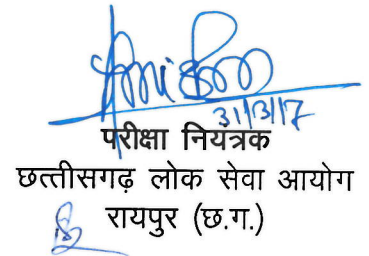 31/3/17
परीक्षा नियंत्रक
छत्तीसगढ़ लोक सेवा आयोग
रायपुर (छ.ग.)